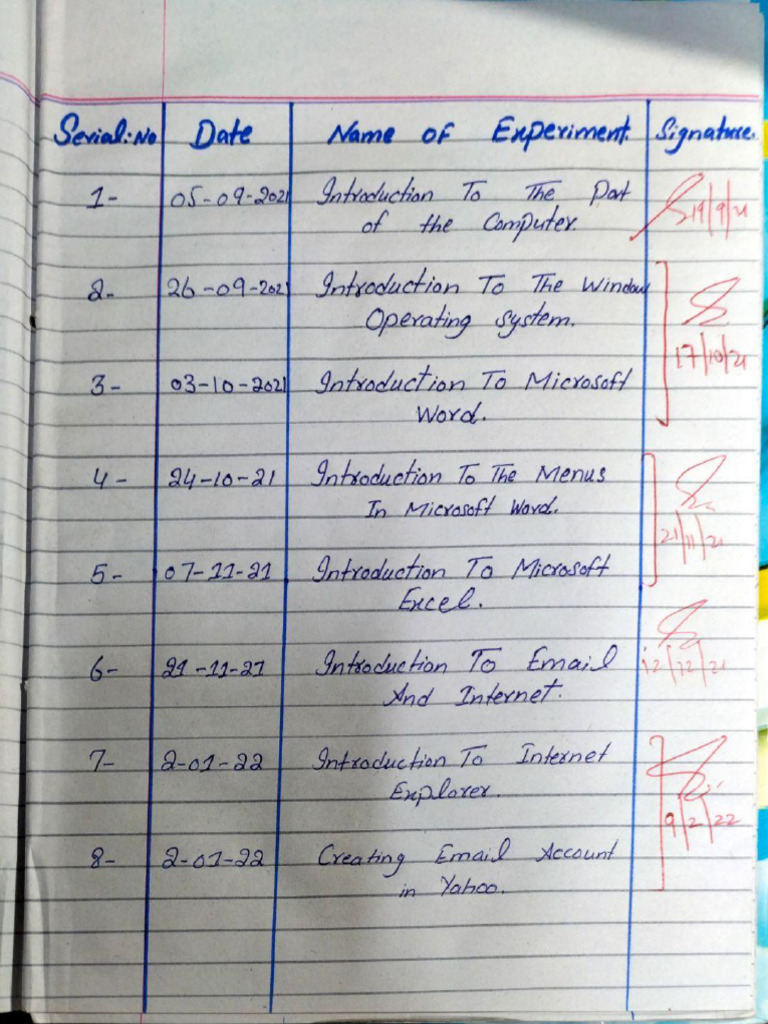 Serial:No Date Name of Experiment. Signature.
1- 05-09-2021 Introduction To The Part
of the Computer. 19/9/21
2- 26-09-2021 Introduction To The Window
Operating System.
17/10/21
3- 03-10-2021 Introduction To Microsoft
Word.
4- 24-10-21 Introduction To The Menus
In Microsoft Word.
21/11/21
5- 07-11-21 Introduction To Microsoft
Excel.
6- 21-11-21 Introduction To Email 12/12/21
And Internet.
7- 2-01-22 Introduction To Internet
Explorer.
9/2/22
8- 2-01-22 Creating Email Account
in Yahoo.